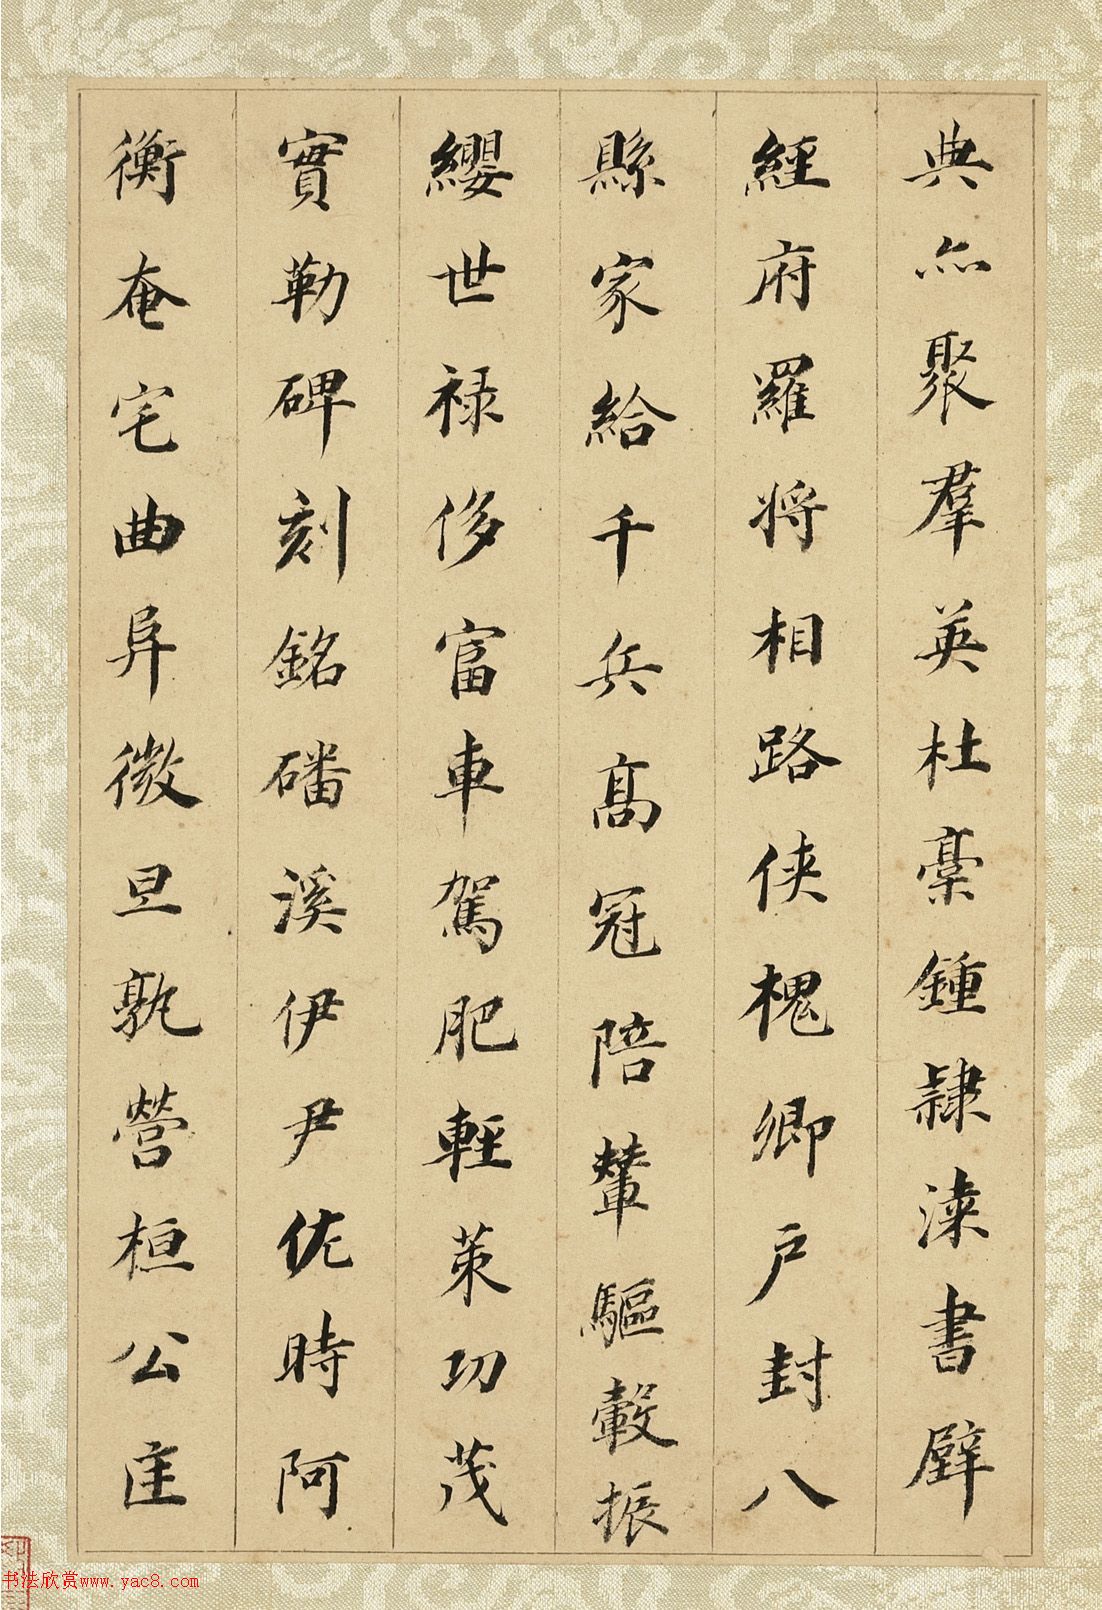 典亦聚羣英杜稾鍾隷漆書壁
經府羅將相路俠槐卿戶封八
縣家給千兵高冠陪輦驅轂振
纓世祿侈富車駕肥輕策功茂
實勒碑刻銘磻溪伊尹佐時阿
衡奄宅曲阜微旦孰營桓公匡
书法欣赏www.yac8.com